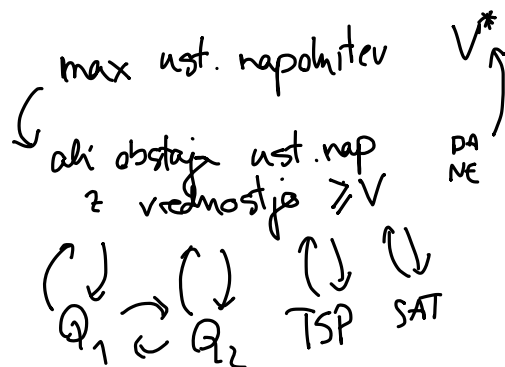 max ust. napolnitev V*
ali obstaja ust. nap DA
z vrednostjo ≥ V NE
Q1 Q2 TSP SAT